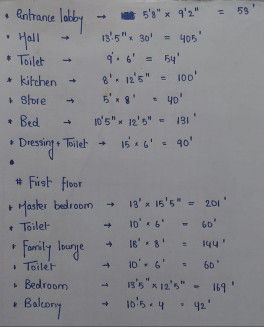 * Entrance lobby → 5'8" × 9'2" = 53'
* Hall → 13'5" × 30' = 405'
* Toilet → 9' × 6' = 54'
* kitchen → 8' × 12'5" = 100'
* Store → 5' × 8' = 40'
* Bed → 10'5" × 12'5" = 131'
* Dressing + Toilet → 15' × 6' = 90'
*
# First floor
* Master bedroom → 13' × 15'5" = 201'
* Toilet → 10' × 6' = 60'
* Family lounge → 18' × 8' = 144'
* Toilet → 10' × 6' = 60'
* Bedroom → 13'5" × 12'5" = 169'
* Balcony → 10'5 × 4 = 42'